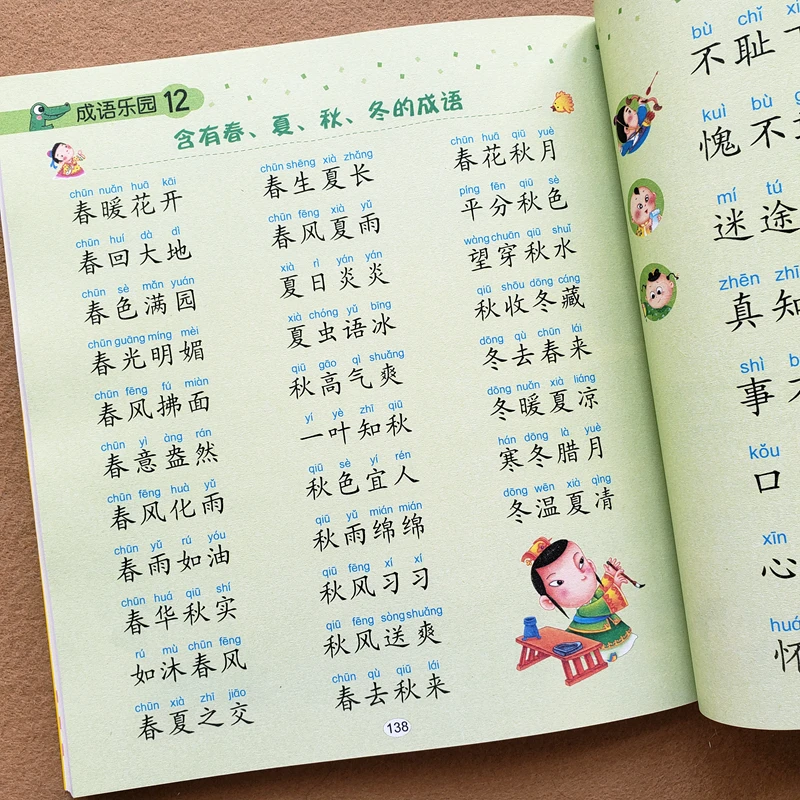 成语乐园 12
含有春、夏、秋、冬的成语
chūn nuǎn huā kāi
春暖花开
chūn huí dà dì
春回大地
chūn sè mǎn yuán
春色满园
chūn guāng míng mèi
春光明媚
chūn fēng fú miàn
春风拂面
chūn yì àng rán
春意盎然
chūn fēng huà yǔ
春风化雨
chūn yǔ rú yóu
春雨如油
chūn huá qiū shí
春华秋实
rú mù chūn fēng
如沐春风
chūn xià zhī jiāo
春夏之交
chūn shēng xià zhǎng
春生夏长
chūn fēng xià yǔ
春风夏雨
xià rì yán yán
夏日炎炎
xià chóng yǔ bīng
夏虫语冰
qiū gāo qì shuǎng
秋高气爽
yí yè zhī qiū
一叶知秋
qiū sè yí rén
秋色宜人
qiū yǔ mián mián
秋雨绵绵
qiū fēng xí xí
秋风习习
qiū fēng sòng shuǎng
秋风送爽
chūn qù qiū lái
春去秋来
chūn huā qiū yuè
春花秋月
píng fēn qiū sè
平分秋色
wàng chuān qiū shuǐ
望穿秋水
qiū shōu dōng cáng
秋收冬藏
dōng qù chūn lái
冬去春来
dōng nuǎn xià liáng
冬暖夏凉
hán dōng là yuè
寒冬腊月
dōng wēn xià qìng
冬温夏凊
138
bù chǐ
不耻
kuì bù
愧不
mí tú
迷途
zhēn zhī
真知
shì
事
kǒu
口
xīn
心
huá
怀